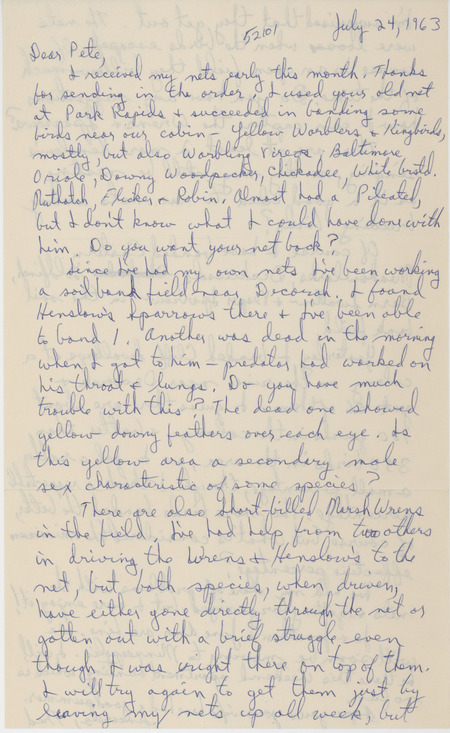 July 24, 1963
52101
Dear Pete,
I received my nets early this month. Thanks
for sending in the order. I used your old net
at Park Rapids & succeeded in banding some
birds near our cabin — Yellow Warblers & Kingbirds,
mostly, but also Warbling Vireos, Baltimore
Oriole, Downy Woodpecker, Chickadee, White brstd.
Nuthatch, Flicker & Robin. Almost had a Pileated,
but I don't know what I could have done with
him. Do you want your net back?
Since I've had my own nets I've been working
a soil bank field near Decorah. I found
Henslow's Sparrows there & I've been able
to band 1. Another was dead in the morning
when I got to him — predator had worked on
his throat & lungs. Do you have much
trouble with this? The dead one showed
yellow downy feathers over each eye. Is
this yellow area a secondary male
sex characteristic of some species?
There are also short-billed Marsh Wrens
in the field. I've had help from two others
in driving the Wrens & Henslow's to the
net, but both species, when driven,
have either gone directly through the net or
gotten out with a brief struggle even
though I was right there on top of them.
I will try again to get them just by
leaving my nets up all week, but